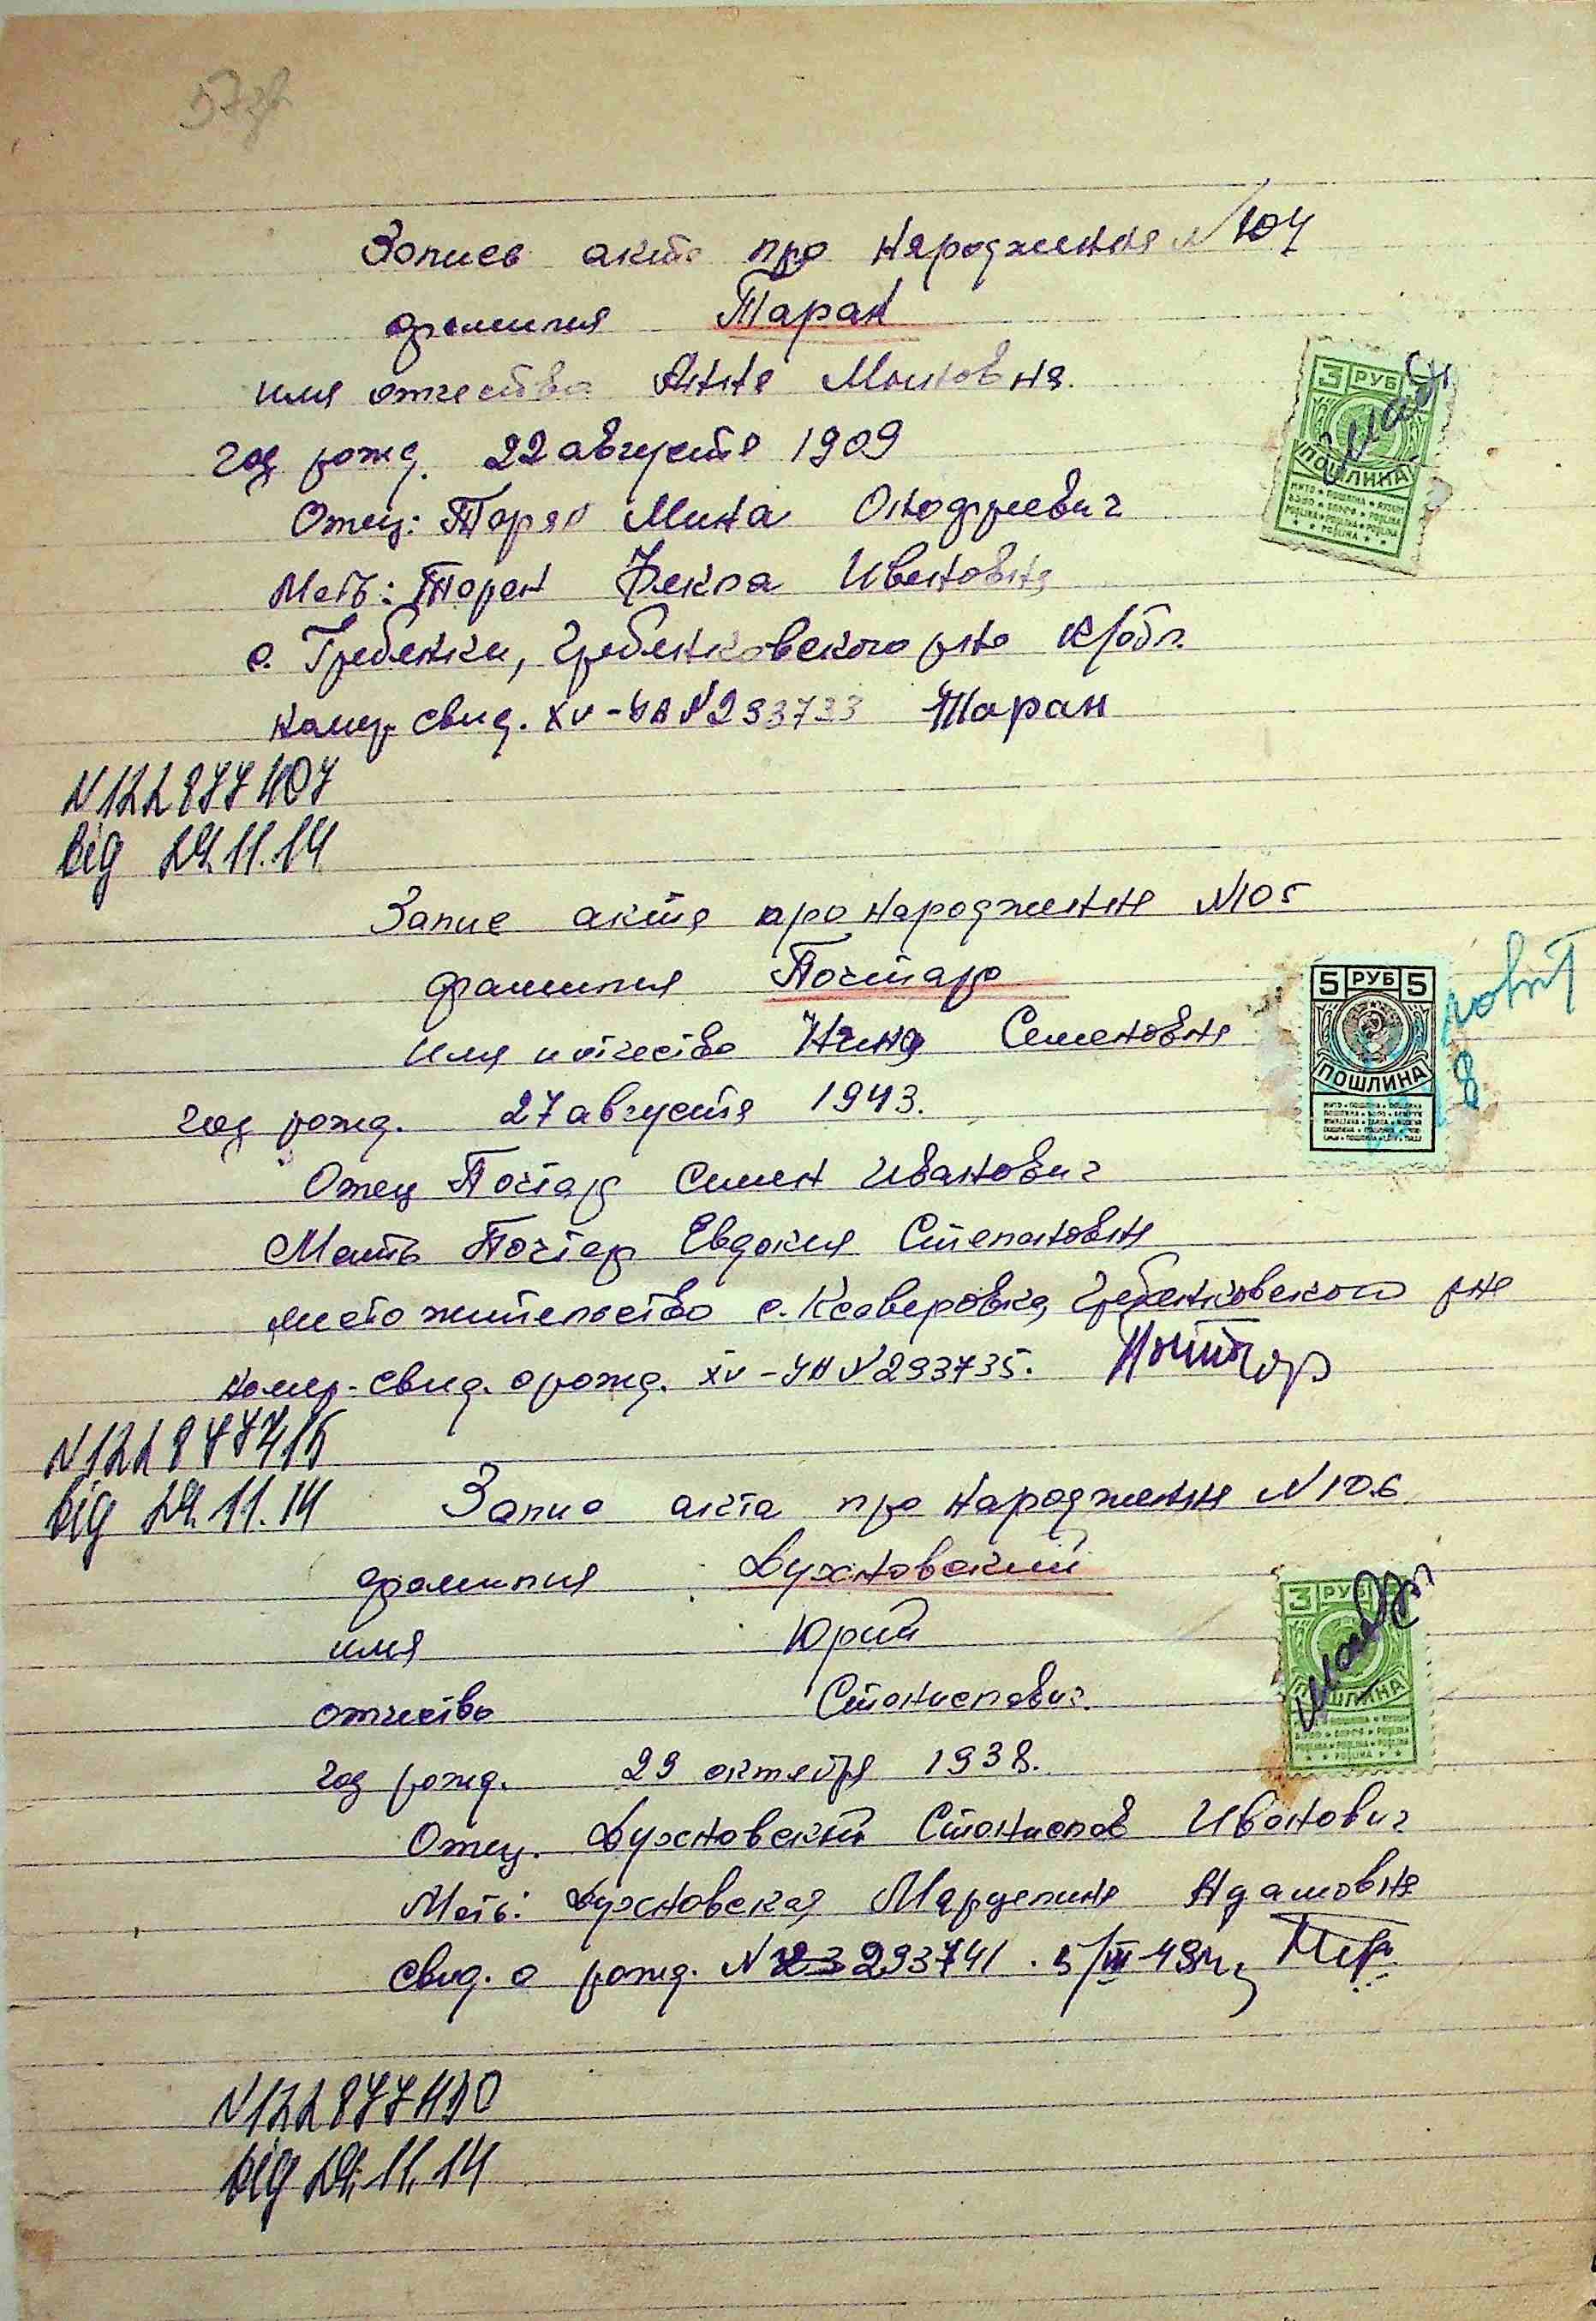 57зв
Запись акта про народження N 104
фамилия Таран
имя отчество Анна Миновна.
год рожд. 22 августа 1909
3 РУБ
ПОШЛИНА
Отец: Таран Мина Онофриевич
Мать: Таран Фекла Ивановна
с. Гребенки, Гребенковского р-на К/обл.
номер свид. XV-УА N 293733 Таран
N 122877407
від 24.11.14
Запис акта про народження N105
фамилия Почтарь
5 РУБ 5
ПОШЛИНА
имя и отчество Нина Семеновна
год рожд. 27 августа 1943.
Отец Почтар Семен Иванович
Мать Почтар Евдокия Степановна
место жительство с. Ксаверовка, Гребенковского р-на
номер свид. о рожд. XV-УА N 293735. Почтар
N 122877415
від 24.11.14
Запис акта про народження N 106
фамилия Духновский
имя Юрий
3 РУБ
ПОШЛИНА
отчество Станиславич.
год рожд. 29 октября 1938.
Отец. Духновский Станислав Иванович
Мать: Духновская Марцелина Адамовна
свид. о рожд. N 293741. 5/III-49г.
N 122877430
від 24.11.14